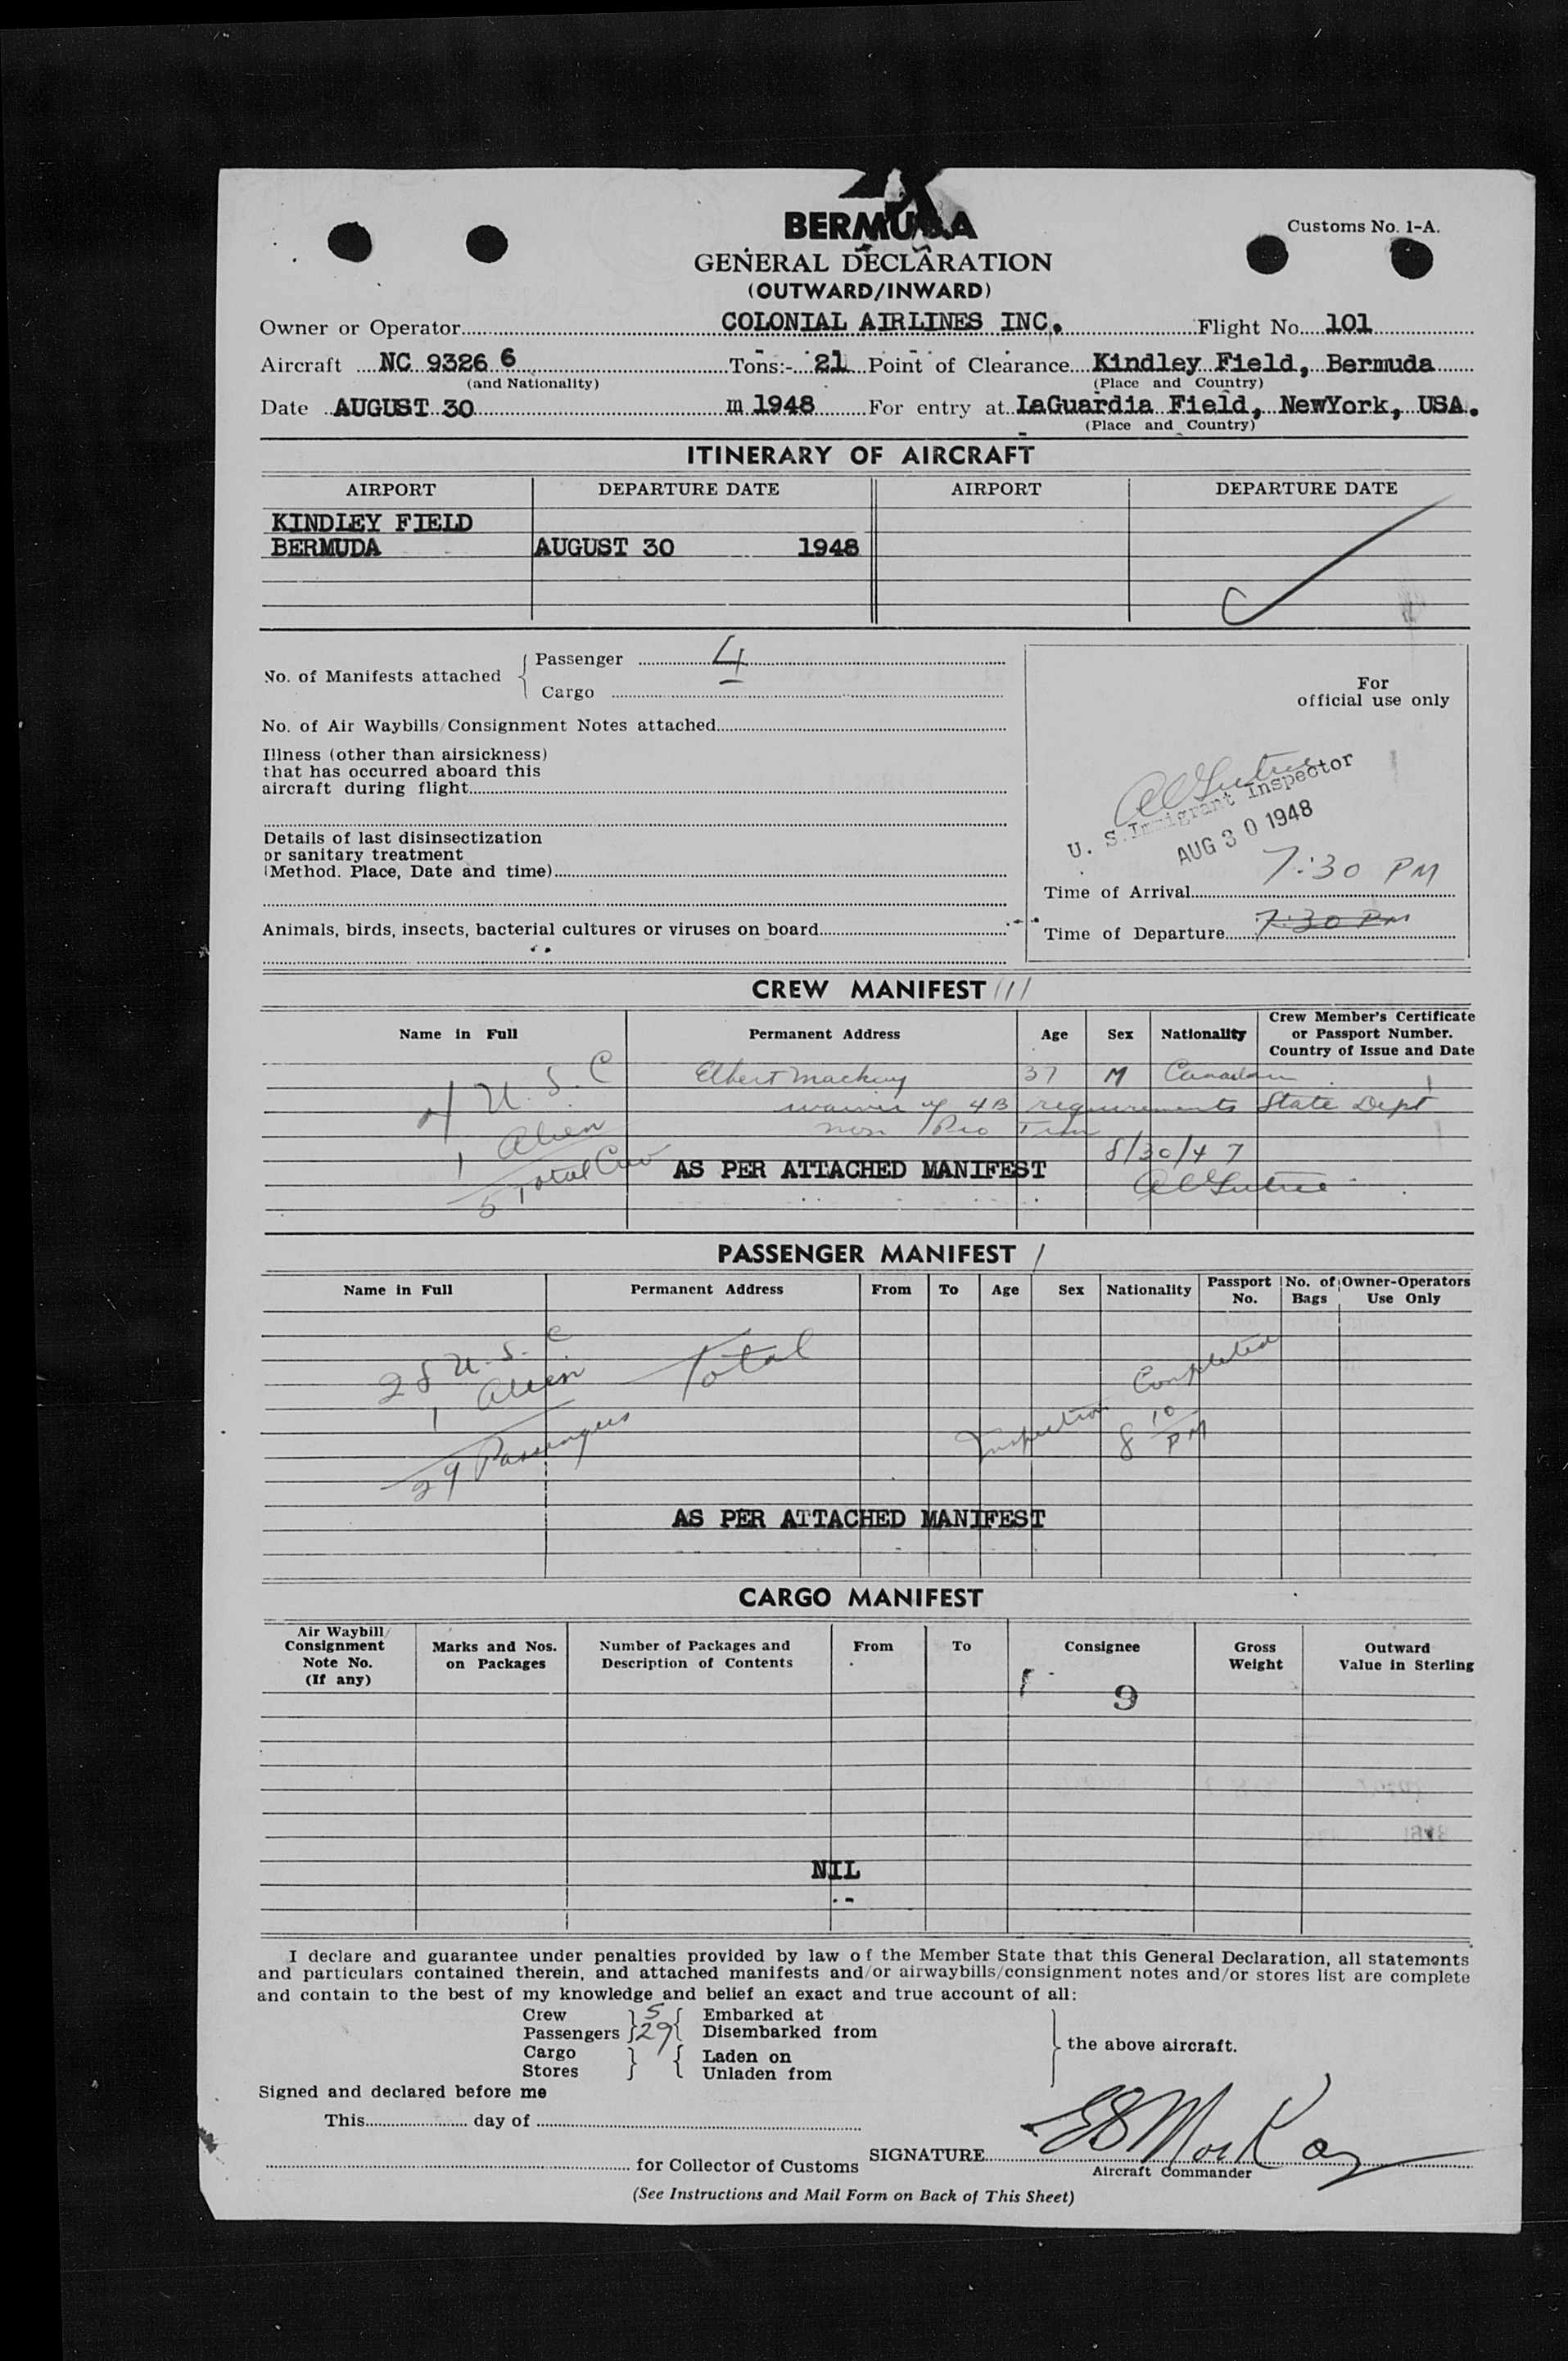 BERMUDA
Customs No. 1-A.
GENERAL DECLARATION
(OUTWARD/INWARD)
Owner or Operator COLONIAL AIRLINES INC. Flight No. 101
Aircraft NC 93266 Tons:- 21 Point of Clearance Kindley Field, Bermuda
(and Nationality) (Place and Country)
Date AUGUST 30 m 1948 For entry at LaGuardia Field, NewYork, USA.
(Place and Country)
ITINERARY OF AIRCRAFT
AIRPORT DEPARTURE DATE AIRPORT DEPARTURE DATE
KINDLEY FIELD
BERMUDA AUGUST 30 1948
No. of Manifests attached
Passenger 4
Cargo
No. of Air Waybills/Consignment Notes attached
Illness (other than airsickness)
that has occurred aboard this
aircraft during flight
Details of last disinsectization
or sanitary treatment
(Method. Place, Date and time)
Animals, birds, insects, bacterial cultures or viruses on board
For
official use only
U. S. Immigrant Inspector
AUG 30 1948
7:30 PM
Time of Arrival
Time of Departure 7:30 PM
CREW MANIFEST
Name in Full Permanent Address Age Sex Nationality Crew Member's Certificate
or Passport Number.
Country of Issue and Date
Elbert Mackay 37 M Canadian
4 U. S. C
waiver of 4B requirements State Dept
1 Alien
8/30/47
5 Total Crew
AS PER ATTACHED MANIFEST
PASSENGER MANIFEST
Name in Full Permanent Address From To Age Sex Nationality Passport No. No. of Bags Owner-Operators Use Only
28 U. S. C
1 Alien
Total
29 Passengers
Inspection Completed
8 10 PM
AS PER ATTACHED MANIFEST
CARGO MANIFEST
Air Waybill/
Consignment
Note No.
(If any)
Marks and Nos.
on Packages
Number of Packages and
Description of Contents
From
To
Consignee
Gross
Weight
Outward
Value in Sterling
9
NIL
I declare and guarantee under penalties provided by law of the Member State that this General Declaration, all statements
and particulars contained therein, and attached manifests and/or airwaybills/consignment notes and/or stores list are complete
and contain to the best of my knowledge and belief an exact and true account of all:
Crew 5 Embarked at
Passengers 29 Disembarked from
Cargo Laden on
Stores Unladen from
the above aircraft.
Signed and declared before me
This day of
for Collector of Customs
SIGNATURE E B MacKay
Aircraft Commander
(See Instructions and Mail Form on Back of This Sheet)